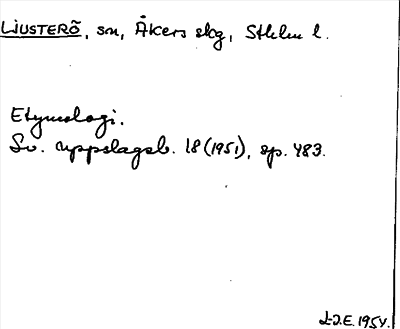 LJUSTERÖ, sn, Åkers skg, Sthlm l.
Etymologi.
Sv. uppslagsb. 18 (1951), sp. 483.
L-J.E. 1954.